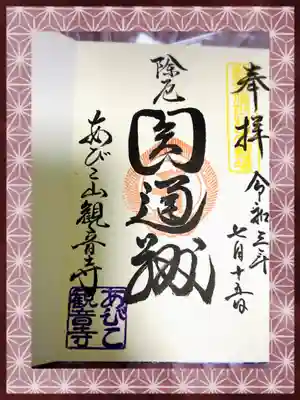 奉拝
令和三年
七月十五日
除厄
圓通殿
あびこ山観音寺
あびこ
観音寺